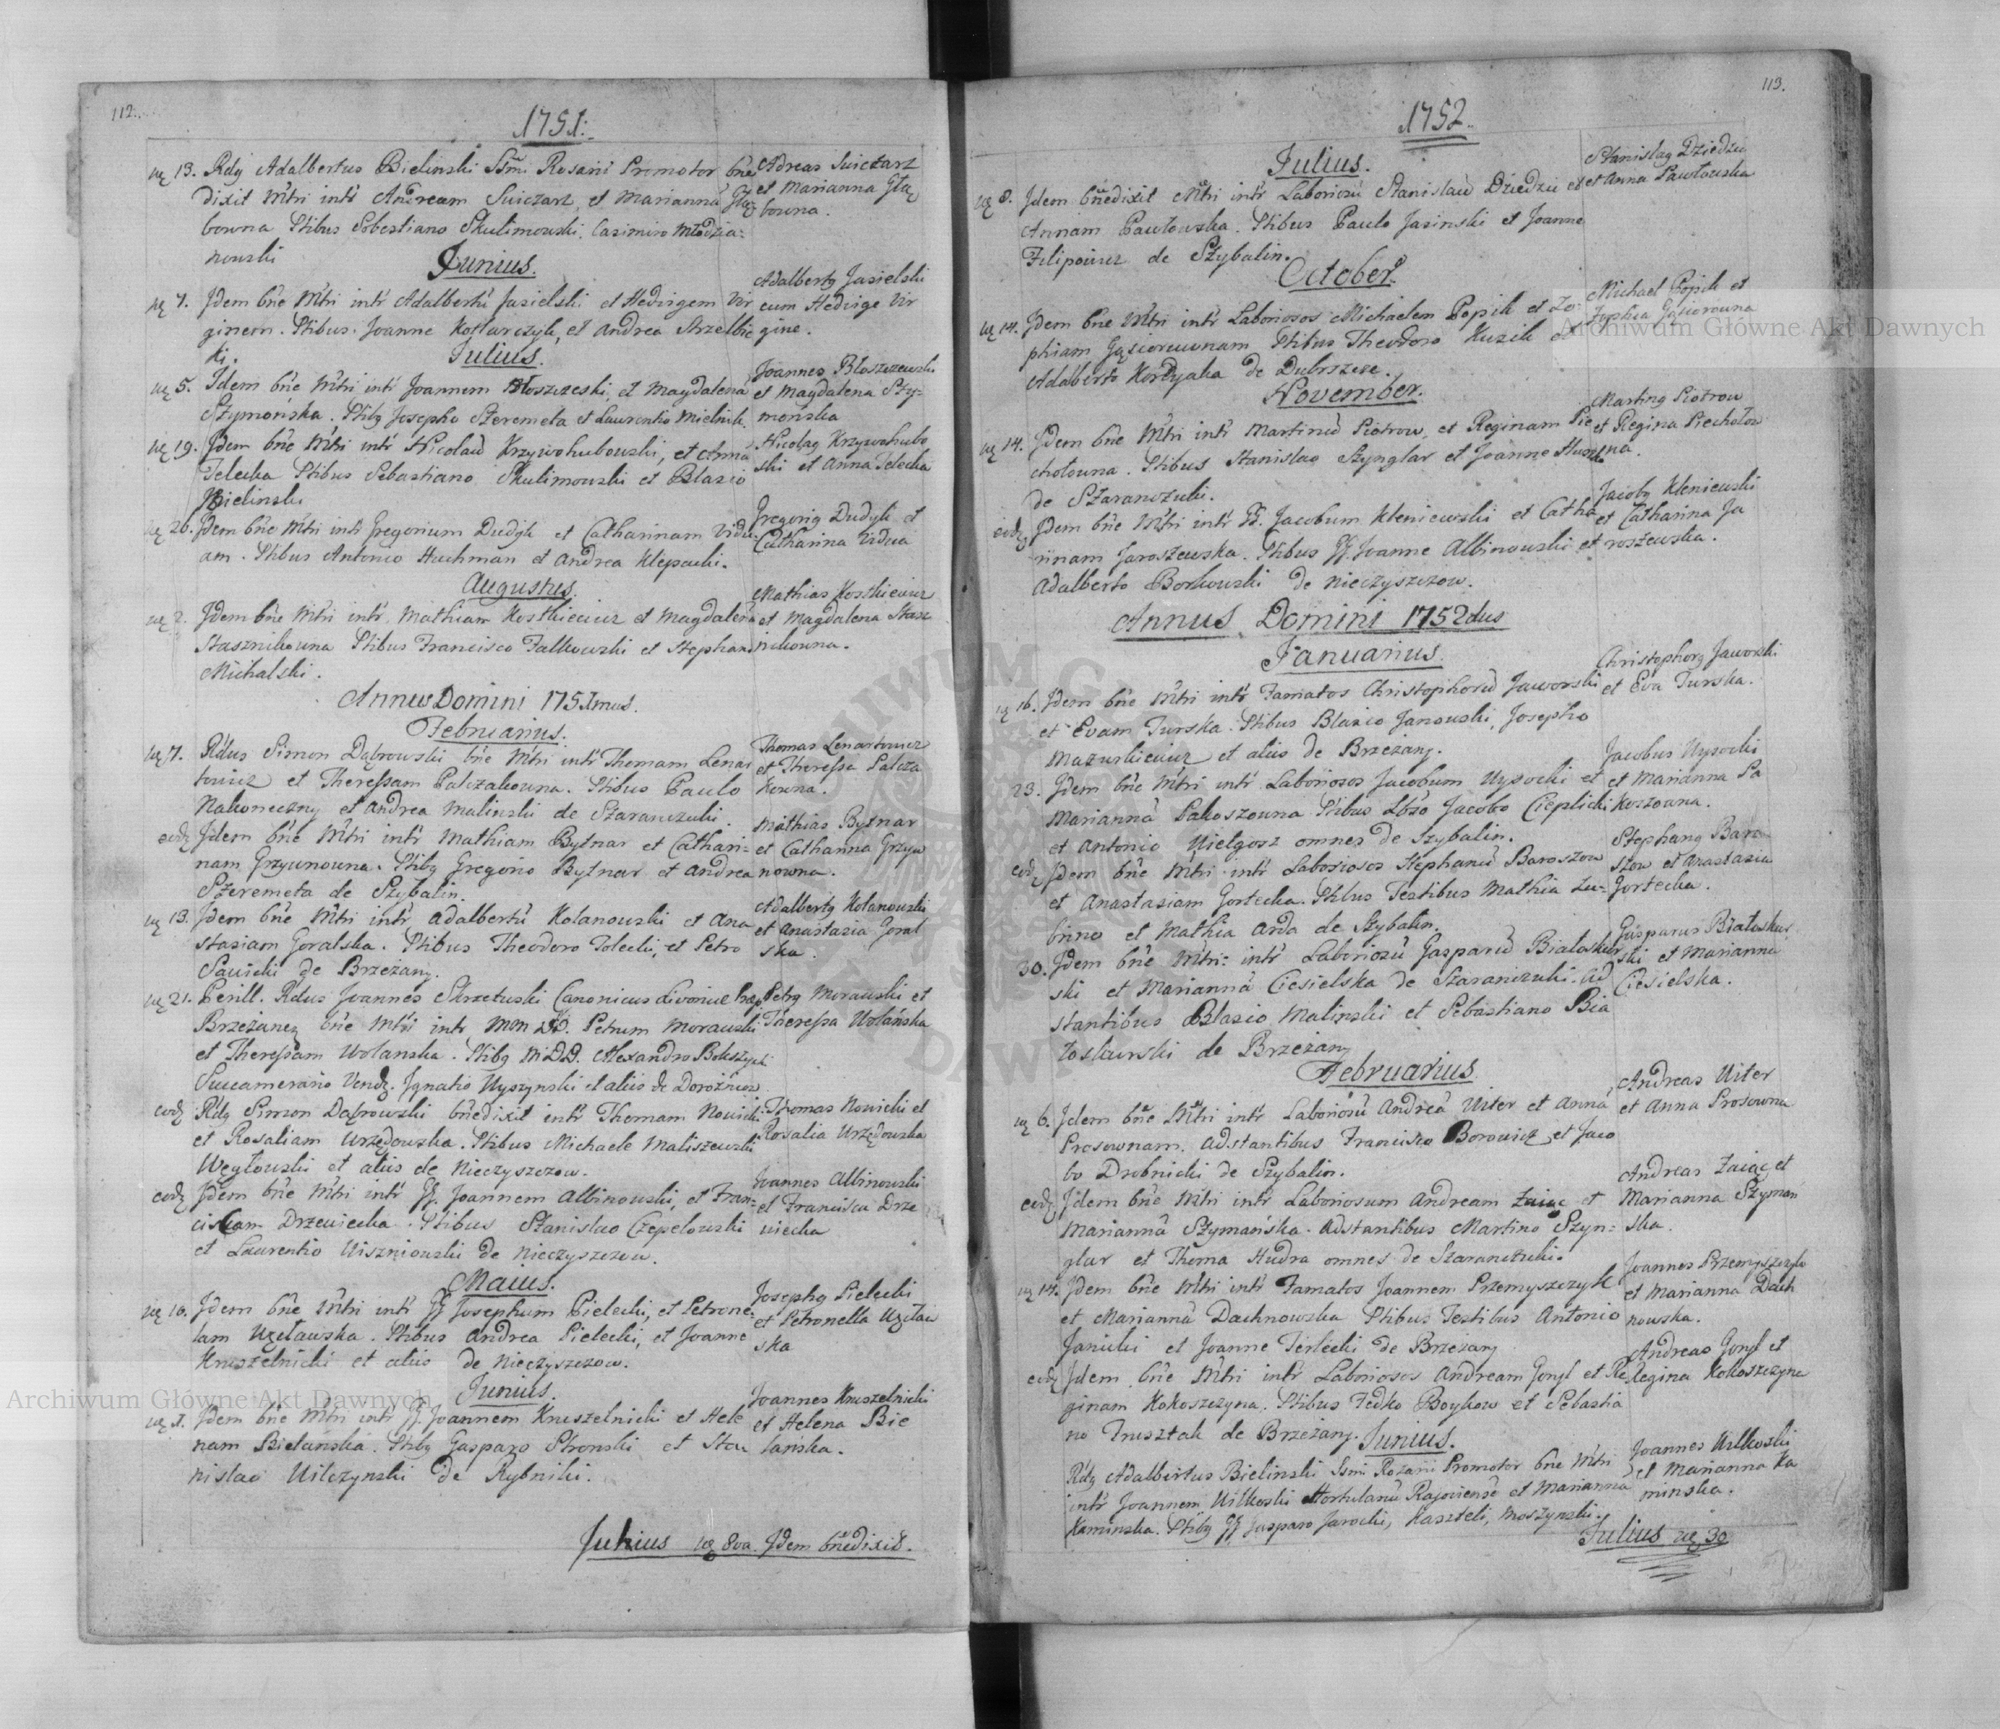 112.
1751.
13. Rdg Adalbertus Bielinski Ssmi Rosarii Promotor bne
dixit Mtri intr Andream Swiczarz et Marianna Głą
bowna Stibus Sebestiano Skulimowski, Casimiro Młodzia=
nowski
Adreas Swiczarz
et Marianna Głą
bowna.
Junius.
7. Jdem bne Mtri intr Adalbertu Jasielski et Hedvigem Vir
ginem. Stibus. Joanne Koglarczyk, et Andrea Strzelbic
ki.
Adalbertg Jasielski
cum Hedvige Vir
gine.
Julius.
5. Jdem bne Mtri intr Joannem Błoszczeski, et Magdalena
Szymońska. Stibg Josepho Szeremeta et Laurentio Mielnik.
Joannes Błaszczewski
et Magdalena Szy=
mońska
19. Jdem bne Mtri intr Nicolau Krzywohubowski, et Anna
Telecka Stibus Sebastiano Skulimowski et Blasio
Bielinski
Nicolag Krzywohubo
ski et Anna Telecka
26. Jdem bne Mtri intr Gregorium Dudyk et Catharinam Vidu
am. Stibus Antonio Huchman et Andrea Klepacki.
Gregorig Dudyk et
Catharina Vidua
Augustus.
2. Jdem bne Mtri intr Mathiam Kostkiewicz et Magdalena
Stasznikowna Stibus Francisco Falkowski et Stephano
Michalski.
Mathias Kostkiewicz
et Magdalena Stasz
nikowna.
Annus Domini 1751mus.
Februarius.
7. Rdus Simon Dąbrowski bne Mtri intr Thomam Lenar
towicz et Theressam Palczakowna. Stibus Paulo
Nakoneczny et Andrea Malinski de Szaranczuki.
Thomas Lenartowicz
et Theressa Palcza
kowna.
eodz Jdem bne Mtri intr Mathiam Bytnar et Cathari=
nam Grzywnowna. Stibg Gregorio Bytnar et Andrea
Szeremeta de Szybalin.
Mathias Bytnar
et Catharina Grzyw
nowna.
13. Jdem bne Mtri intr Adalbertu Kolanowski et Ana
stasiam Goralska. Stibus Theodoro Tolecki, et Petro
Sawicki de Brzeżany.
Adalbertg Kolanowski
et Anastazia Goral
ska.
21. Perill. Rdus Joannes Skrzetuski Canonicus Livoniae Praep
Brzeżaneg bne Mtri intr MM DD. Petrum Morawski
et Theressam Wolanska. Stibg M DD. Alexandro Bokszycki
Succamerario Vend. Jgnatio Wyszynski et aliis de Dorożniow.
Petrg Morawski et
Theressa Wolańska
eodz Rdg Simon Dąbrowski bnedixit intr Thomam Nowicki
et Rosaliam Urzędowska. Stibus Michaele Maliszewski
Węgłowski et aliis de Nieczyszczow.
Thomas Nowicki et
Rosalia Urzędowska
eodz Jdem bne Mtri intr GG. Joannem Albinowski, et Fran=
ciscam Drzewiecka. Stibus Stanislao Czepelowski
et Laurentio Wiszniowski de Nieczyszczow.
Joannes Albinowski
et Francisca Drze
wiecka
Maius.
10. Jdem bne Mtri intr GG Josephum Pielecki, et Petrone=
lam Użeławska. Stibus Andrea Pielecki, et Joanne
Kruszelnicki et aliis de Nieczyszczow.
Josephg Pielecki
et Petronella Użeław
ska
Junius.
1. Jdem bne Mtri intr GG. Joannem Kruszelnicki et Hele
nam Bielańska. Stibg Gasparo Stronski et Sta=
nislao Wilczynski de Rybniki.
Joannes Kruszelnicki
et Helena Bie
lańska.
Julius 8va Jdem bnedixit.
113.
1752.
Julius.
8. Jdem bnedixit Mtri intr Laboriosu Stanislau Dziedzic et
Annam Pawłowska. Stibus Paulo Jasinski et Joanne
Filipowicz de Szybalin.
Stanislag Dziedzic
et Anna Pawłowska
October.
14. Jdem bne Mtri intr Laboriosos Michaelem Popik et Zo=
phiam Gąsiorownam Stibus Theodoro Kuzik et
Adalberto Kordyaka de Dubrszcze.
Michael Popik et
Zophia Gąsiorowna
November.
14. Jdem bne Mtri intr Martinu Piotrow, et Reginam Pie
chotowna. Stibus Stanislao Szynglar et Joanne
de Szaranczuki.
Marting Piotrow
et Regina Piechotow
na.
eodz Jdem bne Mtri intr GG. Jacobum Kleniewski et Catha
rinam Jaroszewska. Stibus GG Joanne Albinowski et
Adalberto Borkowski de Nieczyszczow.
Jacobg Kleniewski
et Catharina Ja
roszewska.
Annus Domini 1752dus
Januarius.
16. Jdem bne Mtri intr Famatos Christophoru Jaworski
et Evam Turska. Stibus Blasio Janowski, Josepho
Mazurkiewicz et aliis de Brzeżany.
Christophorg Jaworski
et Eva Turska.
23. Jdem bne Mtri intr Laboriosos Jacobum Wysocki et
Marianna Pakoszowna Stibus Lbso Jacobo Cieplicki
et Antonio Wielgosz omnes de Szybalin.
Jacobus Wysocki
et Marianna Pa
koszowna.
eodz Jdem bne Mtri intr Laboriosos Stephanu Baroszow
et Anastasiam Gortecka. Stibus Testibus Mathia Zu=
brino et Mathia Arda de Szybalin.
Stephang Baro
szow et Anastazia
Gortecka.
30. Jdem bne Mtri: intr Laboriosu Gasparu Białoskur
ski et Marianna Ciesielska de Szaranczuki. Ad
stantibus Blasio Malinski et Sebastiano Bia
łoskurski de Brzeżany
Gasparus Białoskur
ski et Marianna
Ciesielska.
Februarius.
6. Jdem bne Mtri intr Laboriosu Andrea Witer et Anna
Prosownam. Adstantibus Francisco Borowicz et Jaco
bo Drobnicki de Szybalin.
Andreas Witer
et Anna Prosowna
eodz Jdem bne Mtri intr Laboriosum Andream Zaiąc et
Marianna Szymańska. Adstantibus Martino Szyn=
glar et Thoma Hudra omnes de Szaranczuki.
Andreas Zaiąc et
Marianna Szymań
ska.
14. Jdem bne Mtri intr Famatos Joannem Przemyszczyk
et Marianna Dachnowska Stibus Testibus Antonio
Janicki et Joanne Terlecki de Brzeżany
Joannes Przemyszczyk
et Marianna Dach
nowska.
eodz Jdem bne Mtri intr Laboriosos Andream Gonyl et Re
ginam Kokoszczyna. Stibus Fedko Boykow et Sebastia
no Trusztak de Brzeżany.
Andreas Gonyl et
Regina Kokoszczyna
Junius.
Rdg Adalbertus Bielinski Ssmi Rozarii Promotor bne Mtri
intr Joannem Wilkoski Hortulanu Rajoviense et Marianna
Kaminska. Stibg GG Gasparo Jarocki, Kaszteli, Moszynski.
Joannes Wilkoski
et Marianna Ka
minska.
Julius 30
Archiwum Główne Akt Dawnych
Archiwum Główne Akt Dawnych